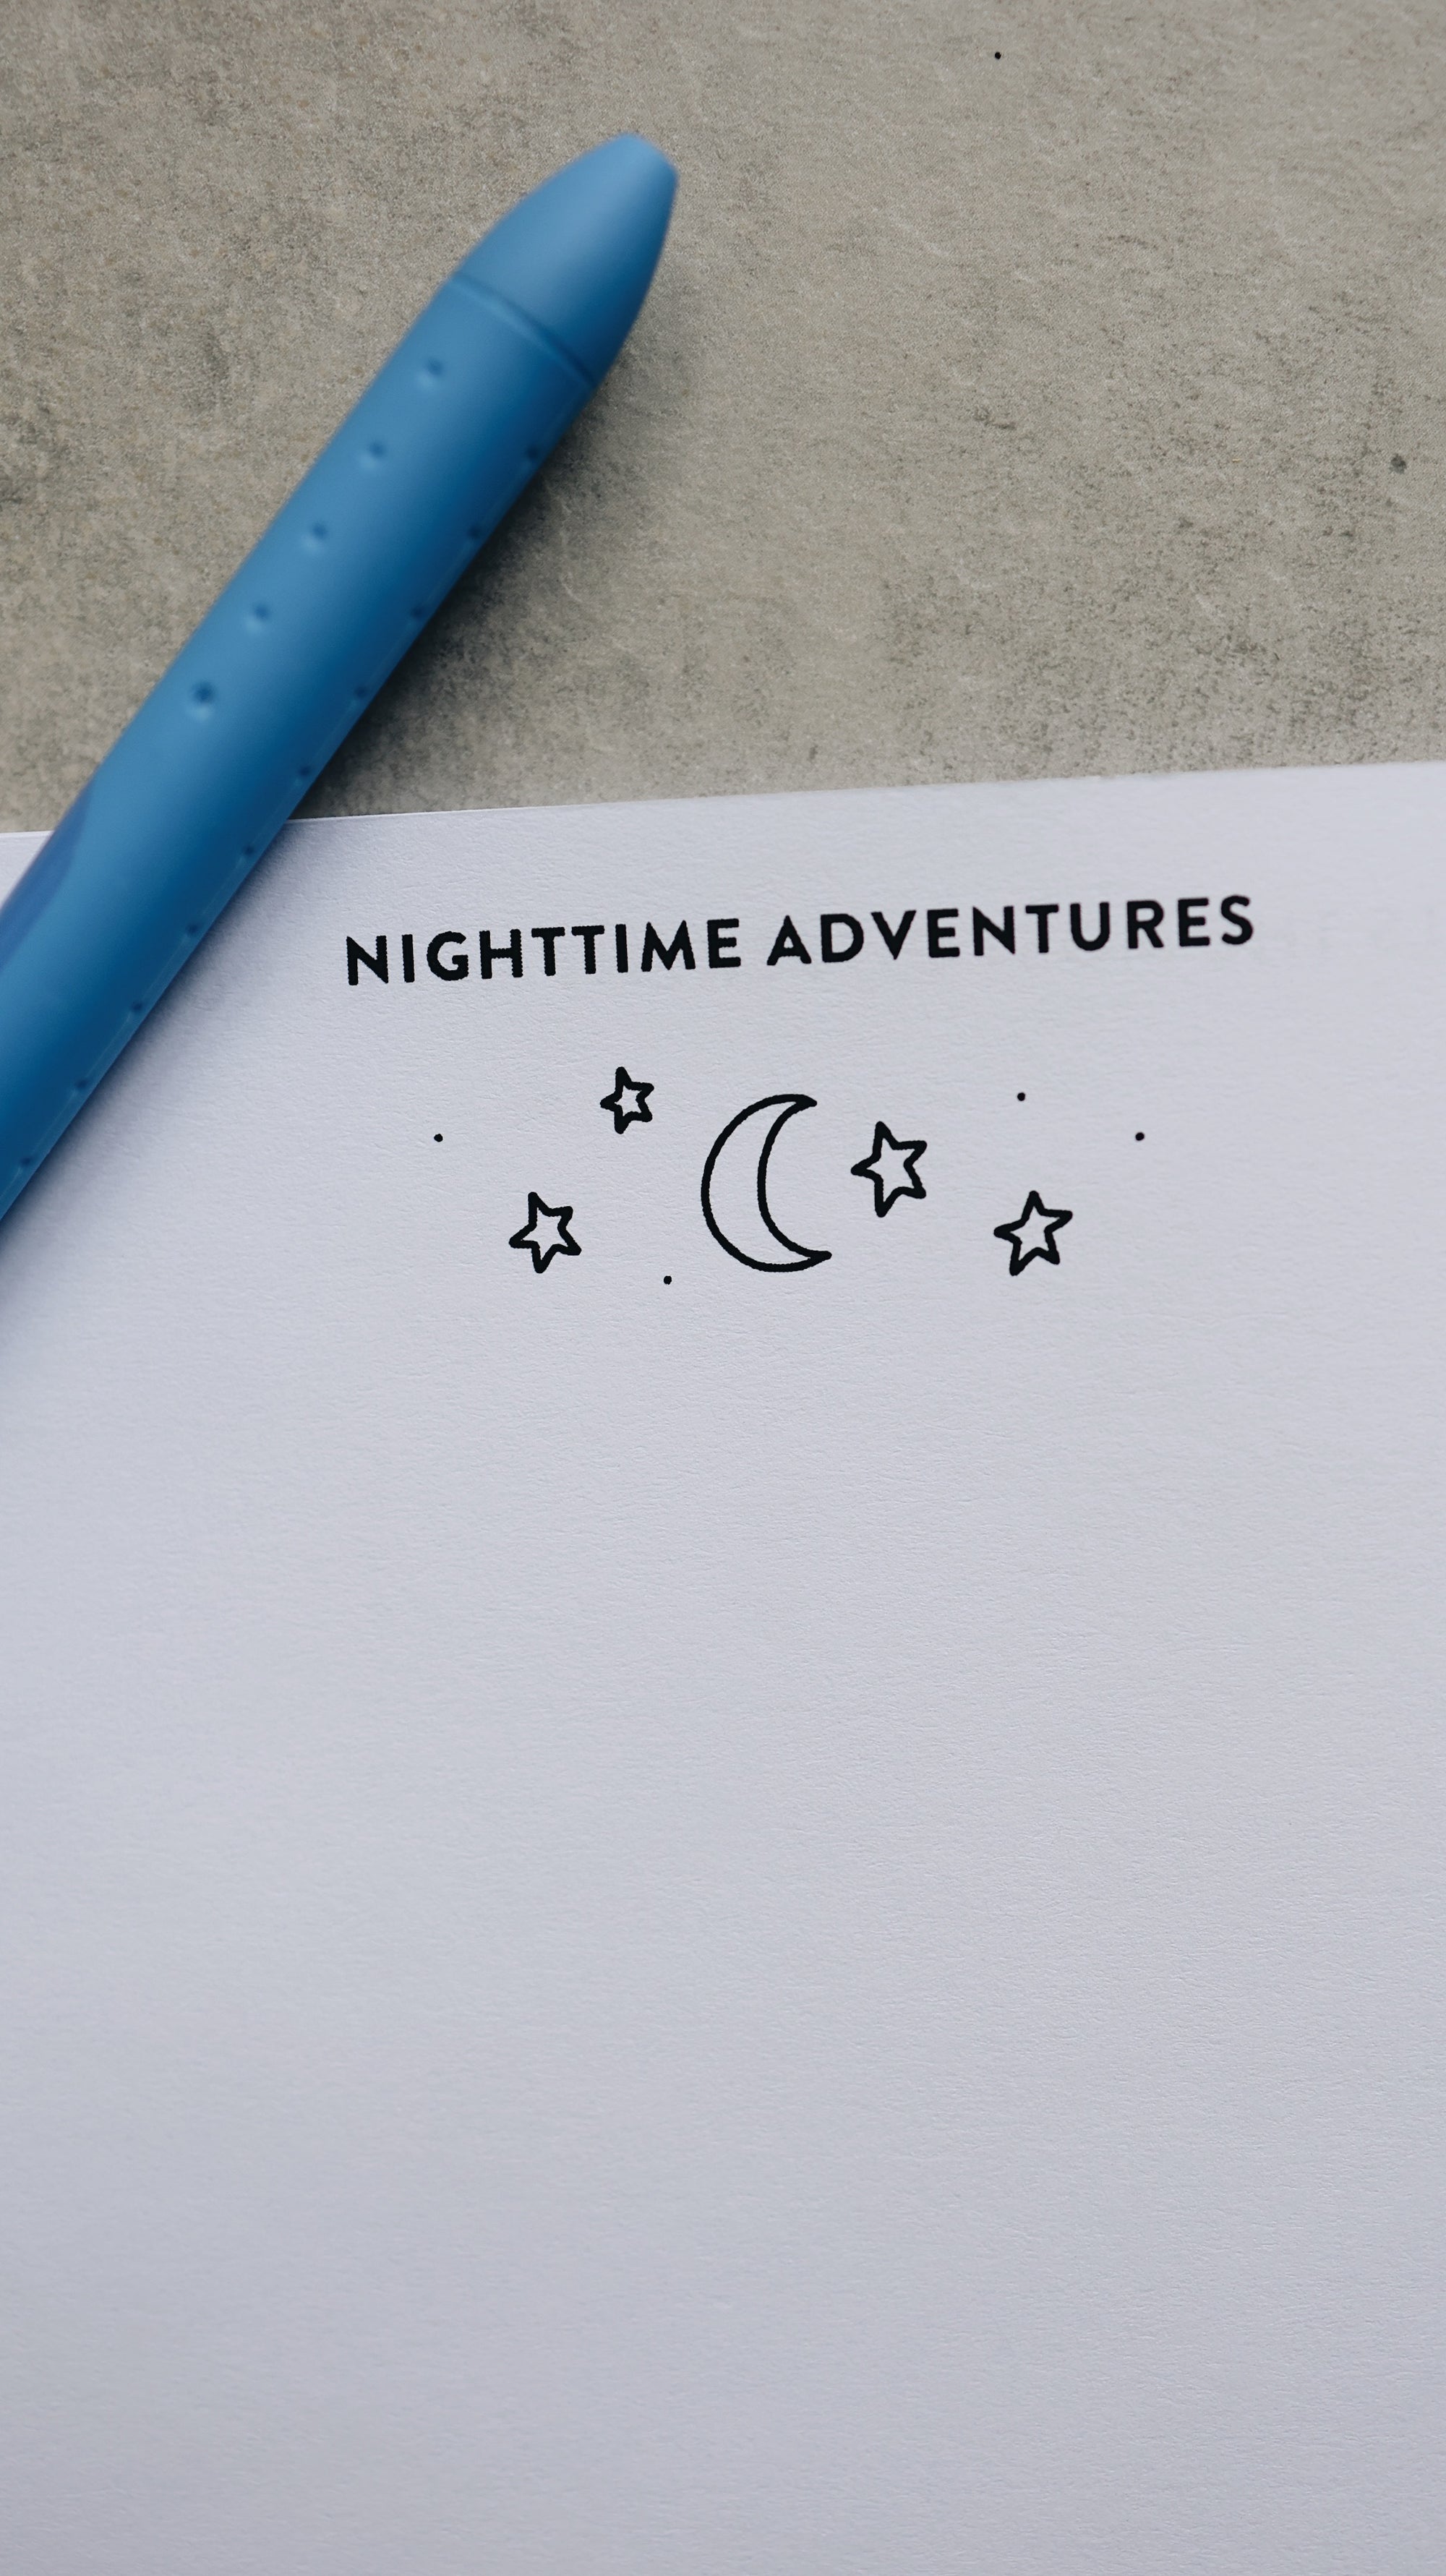 NIGHTTIME ADVENTURES